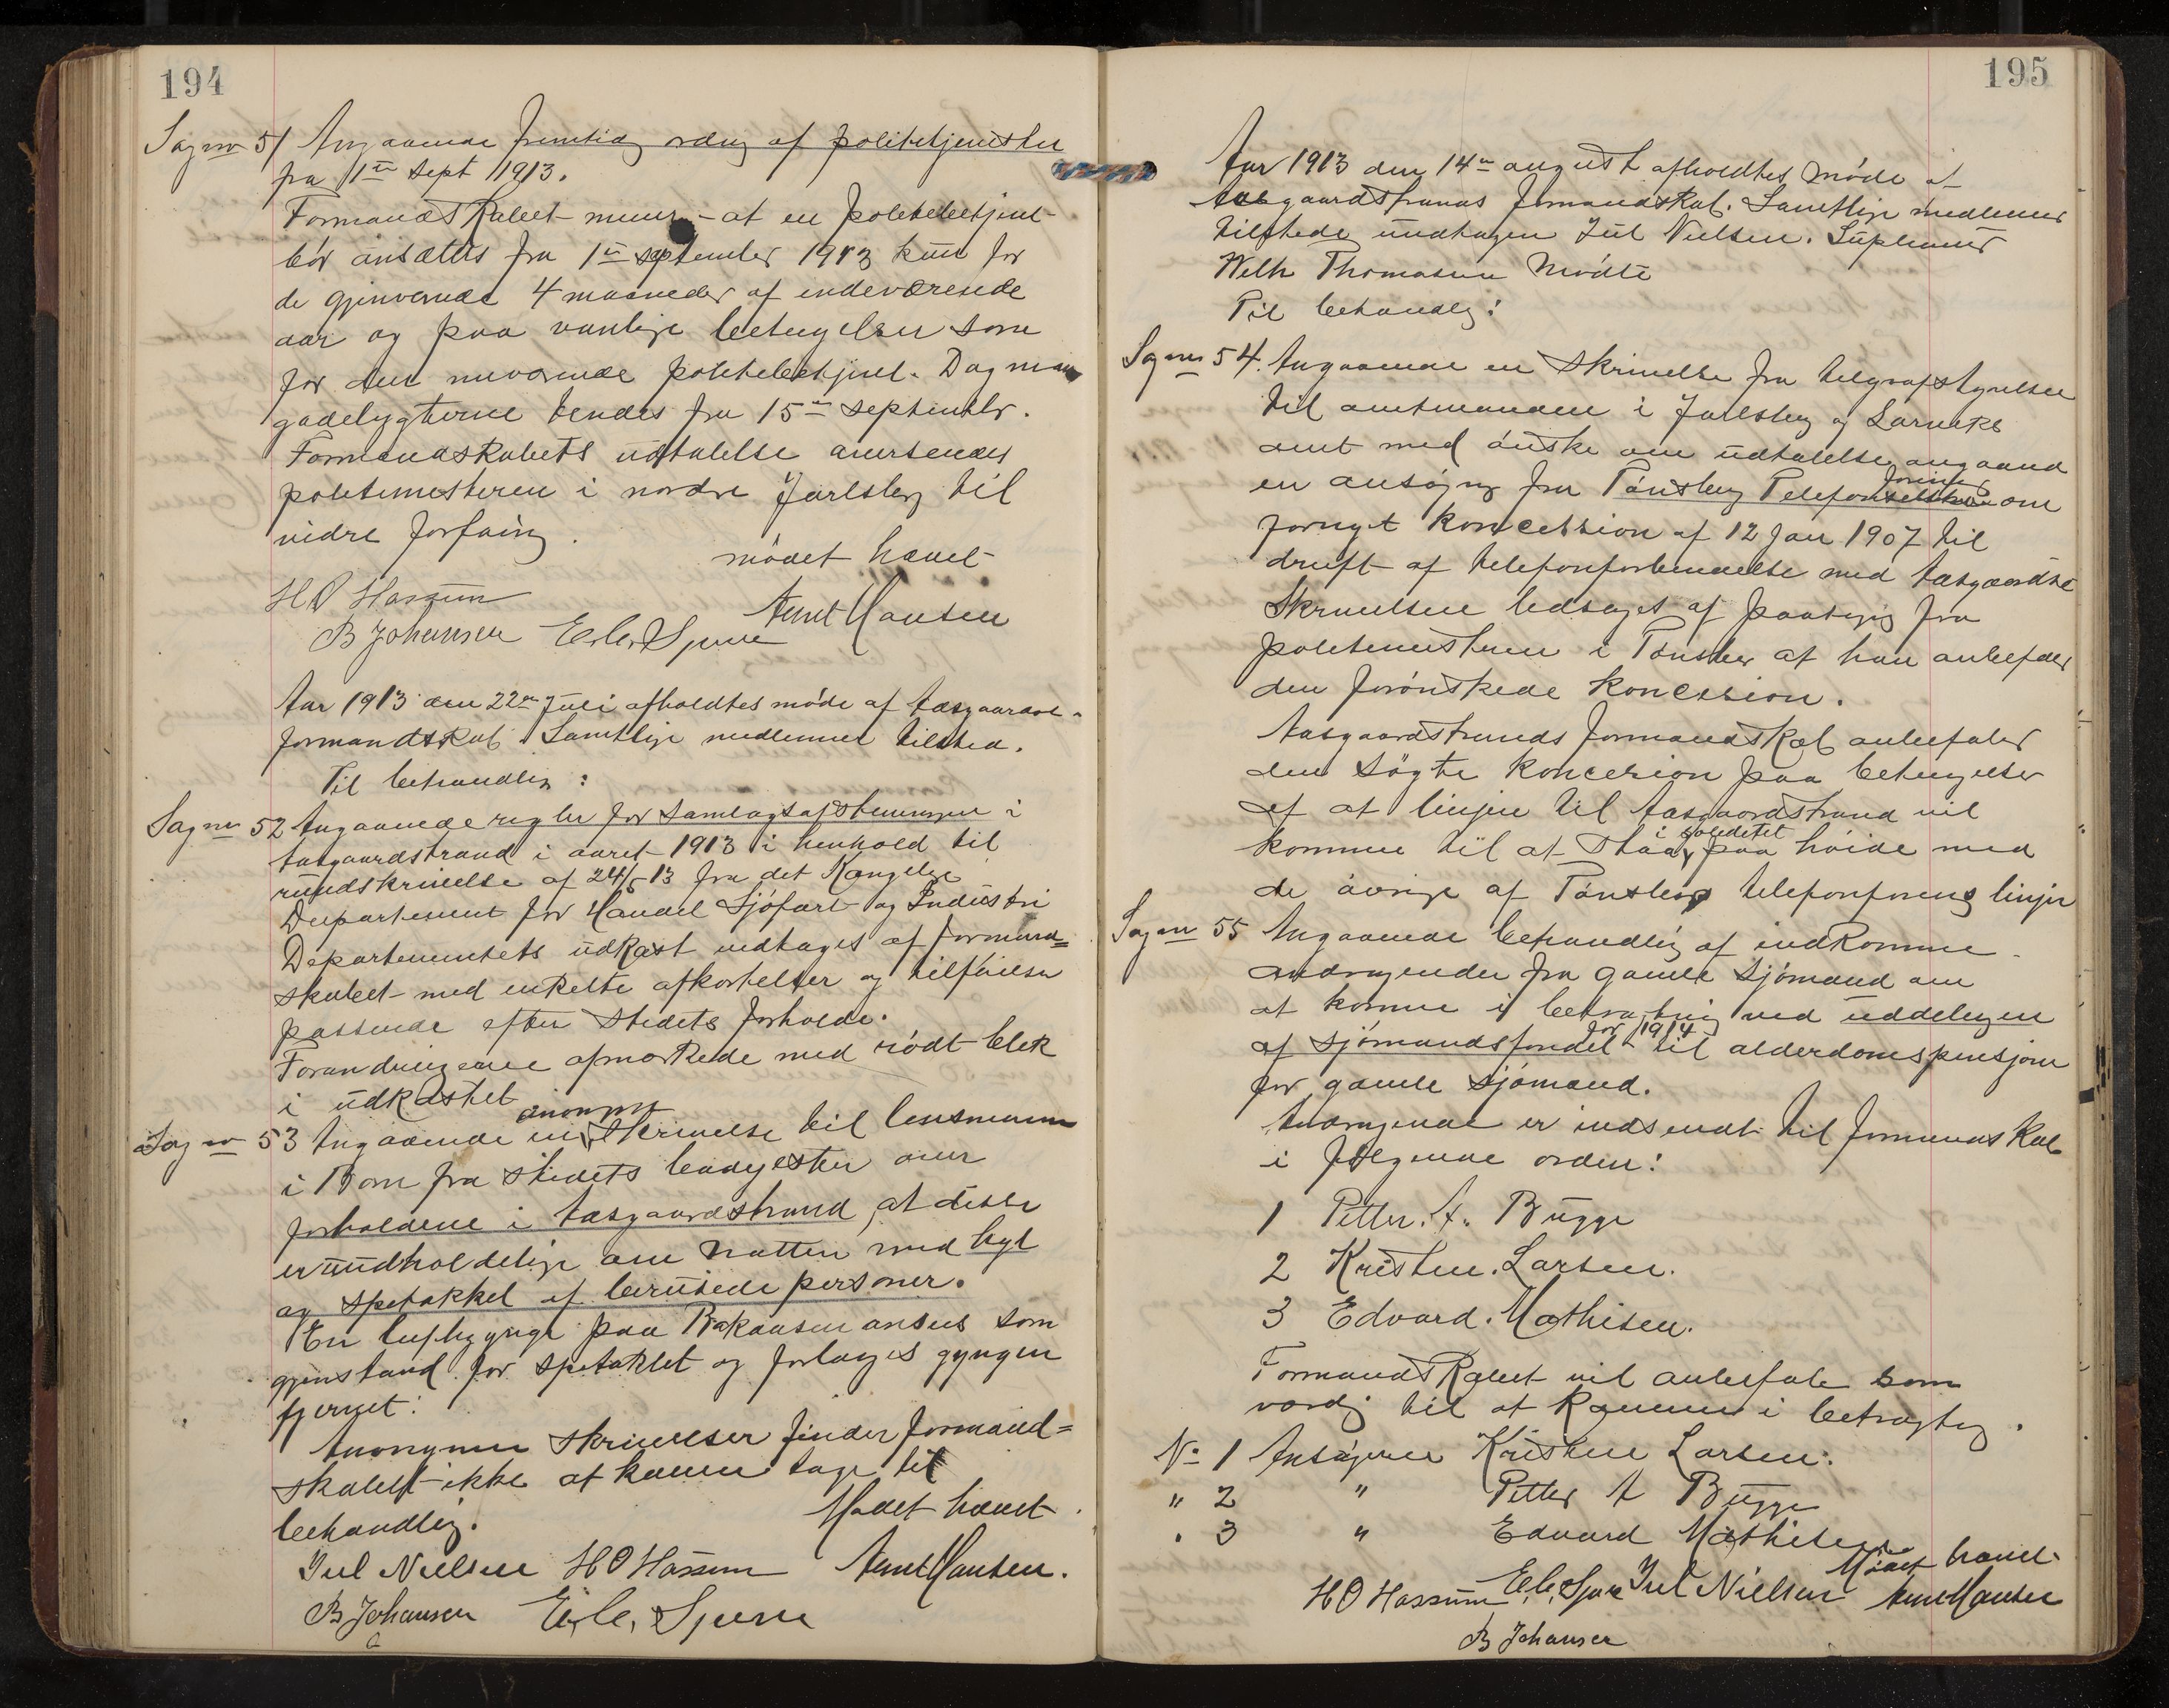 194
Sag no 51 Angaaende fremtidig ordnig af politetjenesten
fra 1ste Sept 1913.
Formandskabet mener at en politebetjent
bør ansættes fra 1ste september 1913 kun for
de gjenværende 4 maaneder af indeværende
aar og paa vanlige betingelser som
for den nuværende politebetjent. Dog maa
gadelygterne tendes fra 15de september.
Formandskabets udtalelse oversendes
politimesteren i nordre Jarlsberg til
vidre forføinig.
mødet hævet
H O Hassum Arnt Hansen
B Johansen E. C. Spurre
Aar 1913 den 22de Juli afholdtes møde af Aasgaards-
formandskab. Samtlige medlemmer tilsted.
Til behandlig:
Sag no 52 Angaaende regler for samlagsafstemningen i
Aasgaardstrand i aaret 1913 i henhold til
rundskrivelse af 24/5 13 fra det Kongelige
Departement for Handel Sjøfart og Industri
Departementets udkast vedtages af formand=
skabet med enkelte afkortelser og tilføielser
passende efter Stedets forholde.
Forandringerne afmærkede med rødt blek
i udkastet
Sag no 53 Angaaende en anonym Skrivelse til lensmann
i Borre fra Stedets badegjester over
forholdene i Aasgaardstrand, at disse
er uudholdelige om Natten med hyl
og spetakkel af berusede personer.
En lufthgynge paa Bakaasen ansees som
gjenstand for spetaklet og forlanges gyngen
fjernet.
Anonyme skrivelser finder formand=
skabet ikke at kunne tage til
behandlig. Mødet hævet
Jul Nielsen H O Hassum Arnt Hansen.
B Johansen E. C. Spurre
195
Aar 1913 den 14de august afholdtes møde af
Aasgaardstrands formandskab. Samtlige medlemmer
tilstede undtagen Jul Nielsen. Supleant
Wilh Thomasen mødte
Til behandlg:
Sag no 54. Angaaende en Skrivelse fra telegrafstyrelsen
til amtmanden i Jarlsberg og Larviks
amt med ønske om udtalelse angaaend
en ansøgnig fra Tønsberg Telefonselskab forening om
fornyet koncession af 12 Jan 1907 til
drift af telefonforbindelse med Aasgaardst
Skrivelsen ledsaget af paategnig fra
politimesteren i Tønsber at han anbefaler
den forønskede koncession.
Aasgaardstrands formandskab anbefaler
den søgte koncesion paa betingelse
af at linjen til Aasgaardstrand vil
komme til at staa i soliditet paa høide med
de øvrige af Tønsbergs telefonforenings linjer
Sag no 55 Angaaende behandlig af indkomne
andragender fra gamle Sjømænd om
at komme i betragtnig ved uddelingen
af sjømandsfondet for 1914 til alderdomspensjon
for gamle sjømænd.
Andragende er indsendt til formandskab
i følgende orden:
1 Petter. A. Bugge
2 Kristen. Larsen.
3 Edvard. Mathisen.
Formandskabet vil anbefale som
værdig til at komme i betragtng.
No 1 Ansøgeren Kristen Larsen.
" 2 " Petter A Bugge
" 3 " Edvard Mathisen
Mødet hævet
H O Hassum E. C. Spurre Jul Nielsen Arnt Hansen
B Johansen